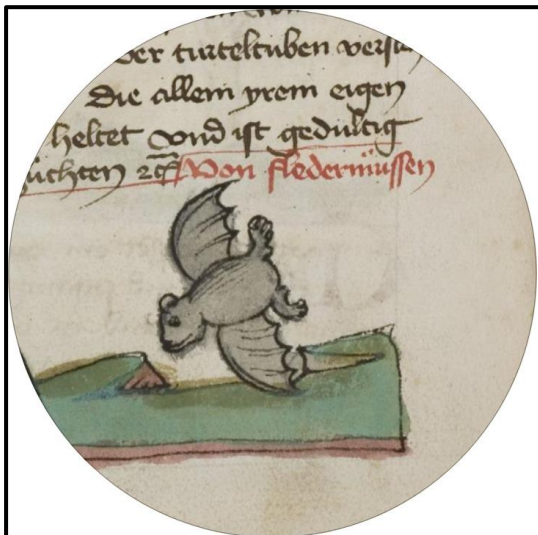 der turteltuben
Die allem yrem eigen
heltet vnd ist gedultig
üchten ⁊c Von fledermüssen